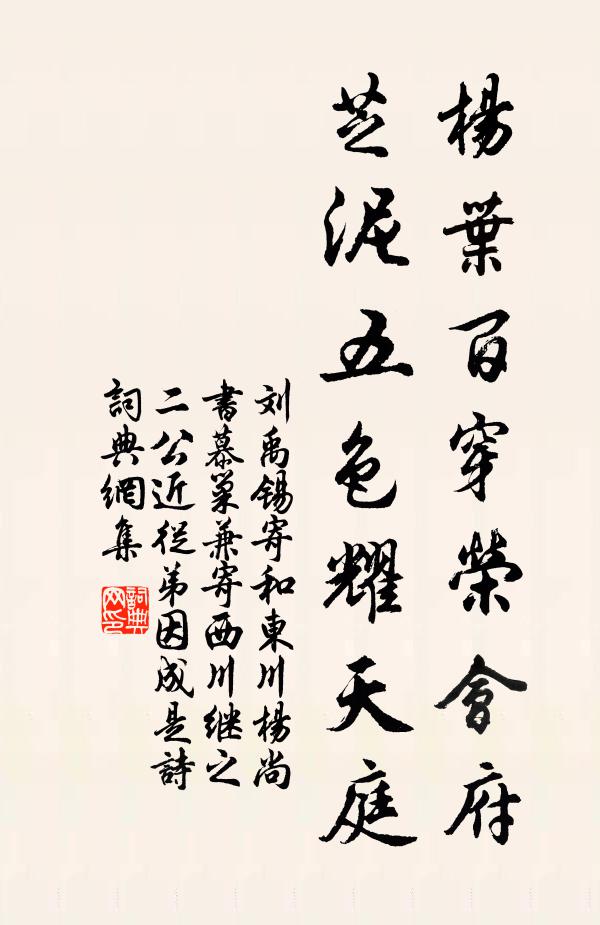 楊葉百穿榮會府
芝泥五色耀天庭
刘禹锡寄和東川楊尚
書慕巢兼寄西川继之
二公近從弟因成是詩
詞典網集
詞典
网印